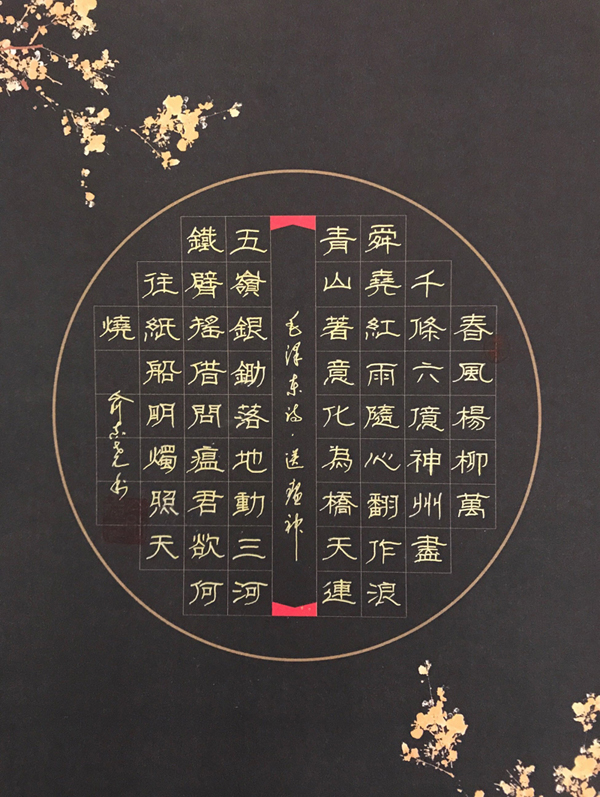 春風楊柳萬
千條六億神州盡
舜堯紅雨隨心翻作浪
青山著意化為橋天連
毛泽东诗·送瘟神
五嶺銀鋤落地動三河
鐵臂搖借問瘟君欲何
往紙船明燭照天
燒